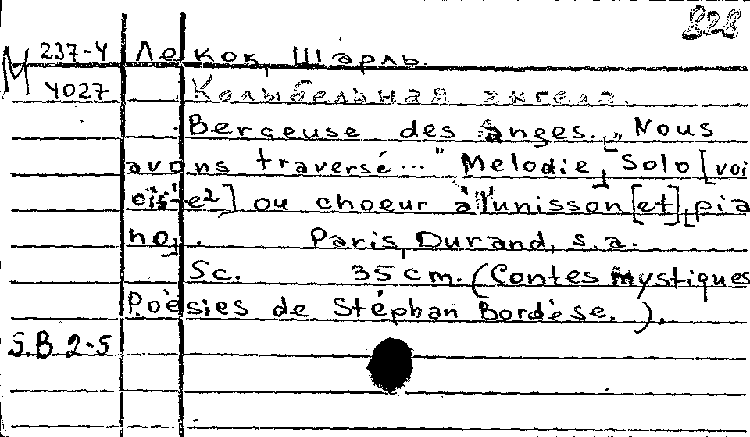 828
М 237-4 Лекок, Шарль.
4027 Колыбельная ангела.
Berceuse des anges. „Nous
avons traversé..." Melodie, Solo [voi
cis¹-e²] ou choeur à l'unisson [et] [pia
no].. Paris, Durand, s.a.
Sc. 35 cm. (Contes mystiques
Poèsies de Stéphan Bordèse.).
S.B 2-5